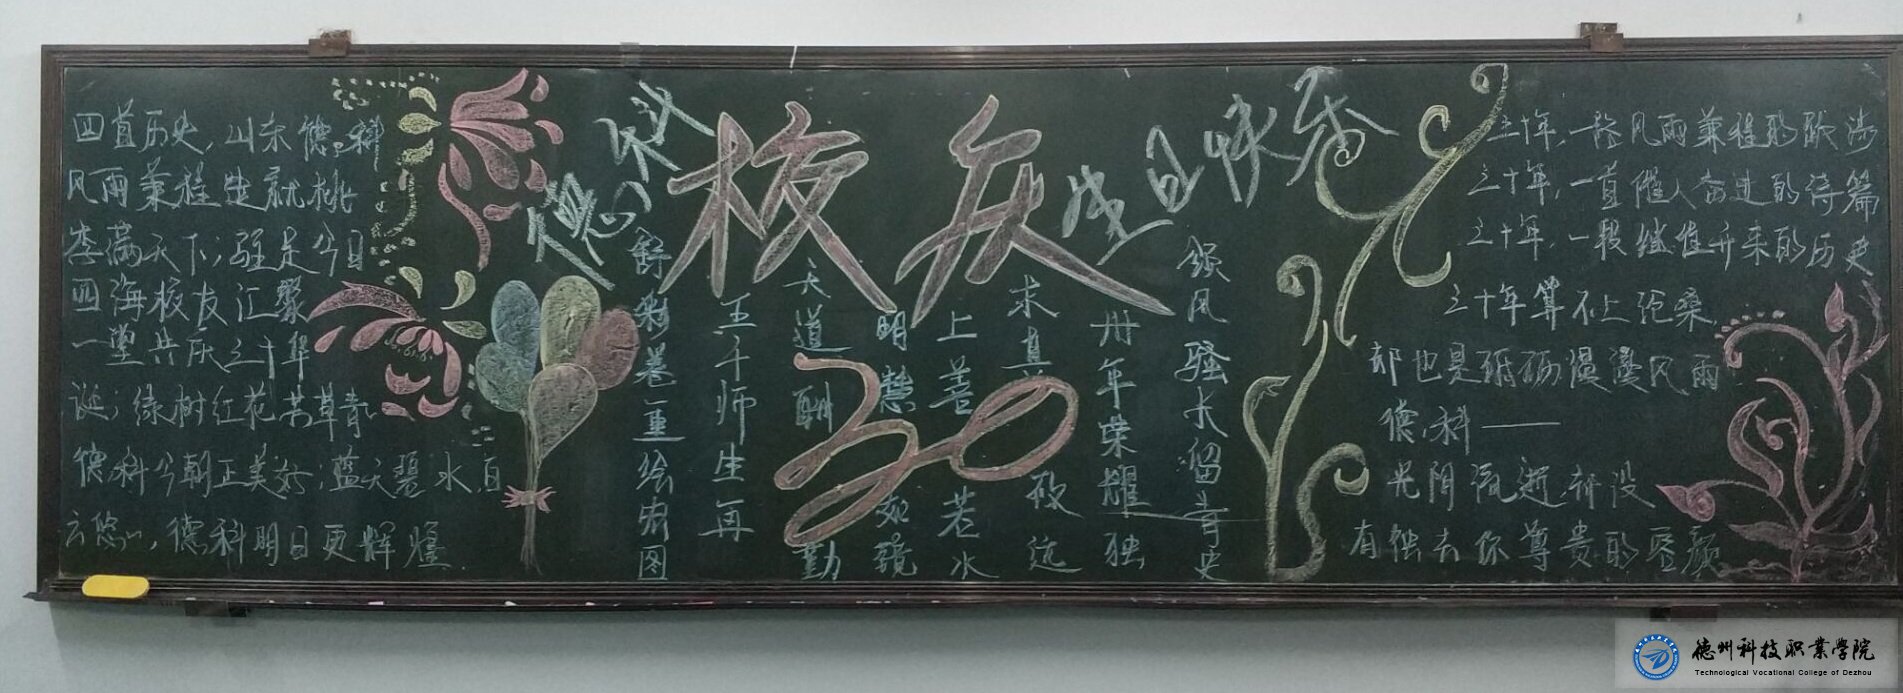 四首历史,山东德科
风雨兼程造就桃
李满天下;驻足今日
四海校友汇聚
一堂共庆三十华
诞;绿树红花芳草青
德科今朝正美好;蓝天碧水,白
云悠悠,德科明日更辉煌.
德科
校庆
生日快乐
30
舒彩卷重绘宏图
王千师生再
天道酬勤
明慧如镜
上善若水
求真致远
卅年荣耀独
领风骚木留青史
三十年,一路风雨兼程的跋涉
三十年,一首催人奋进的诗篇
三十年,一段继往开来的历史
三十年算不上沧桑,
却也是砥砺漫漫风雨
德科——
光阴流逝,并没
有
你尊贵的容颜
德州科技职业学院
Technological Vocational College of Dezhou